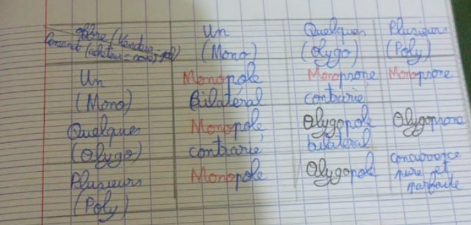 Offre (Vendeur
Demande (acheteur
Un
(Mono)
Quelques
(Olygo)
Plusieurs
(Poly)
Un
(Mono)
Monopole
Bilatéral
Monoprone
contrarié
Monoprone
Quelques
(Olygo)
Monopole
contrarié
Olygopole
bilatéral
Olygoprone
Plusieurs
(Poly)
Monopole
Olygopole
concurrence
pure et
parfaite